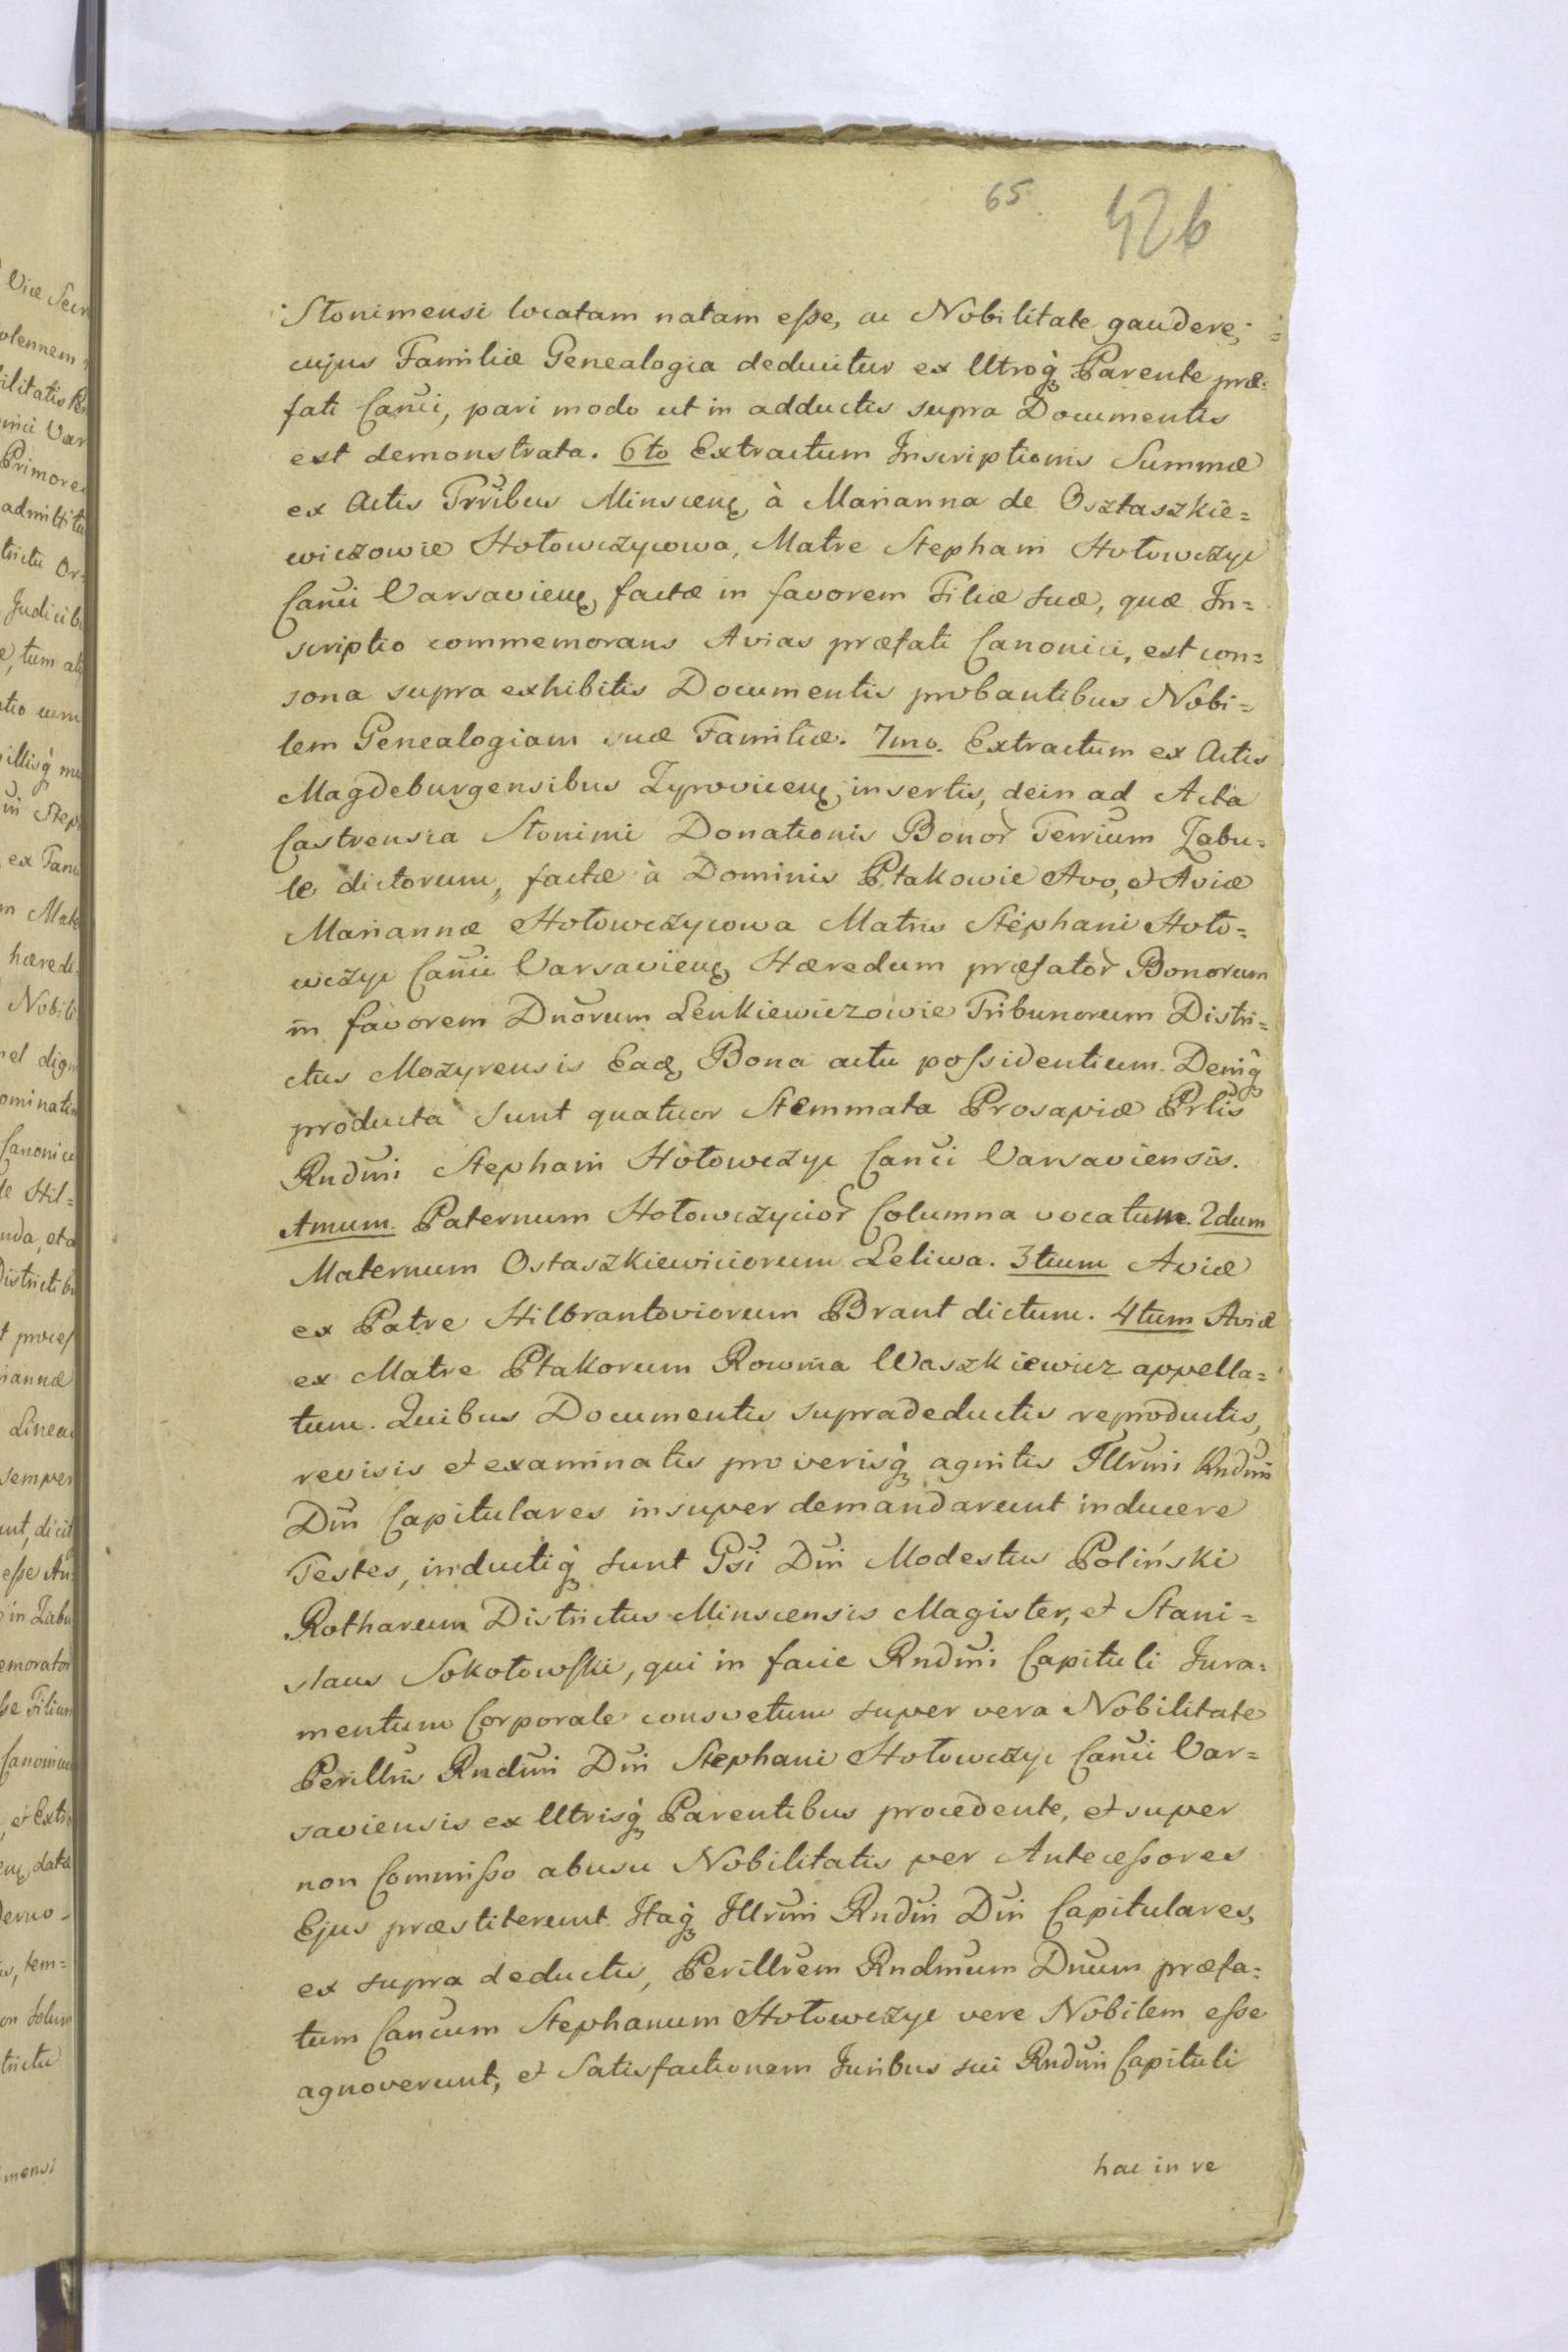 65. 426
Słonimensi locatam natam eſse, ac Nobilitate gaudere;
cujus Familiæ Genealogia deducitur ex Utroq̀ Parente præ=
fati Canci, pari modo ut in adductis supra Documentis
est demonstrata. 6to Extractum Inscriptionis Summæ
ex Actis Trribus Minscenę à Marianna de Osztaszkie=
wiczowie Hołowczycowa, Matre Stephani Hołowczyc
Canci Varsavienę factæ in favorem Filiæ suæ, quæ In=
scriptio commemorans Avias præfati Canonici, est con=
sona supra exhibitis Documentis probantibus Nobi=
lem Genealogiam suæ Familiæ. 7mo. Extractum ex Actis
Magdeburgensibus Zyrovicenę insertis, dein ad Acta
Castrensia Słonimi Donationis Bonor Terrium Zabu=
le dictorum, factæ à Dominis Ptakowie Avo, et Aviæ
Mariannæ Hołowczycowa Matris Stephani Hoło=
wczyc Canci Varsavienę Hæredum præfator Bonorum
in favorem Dnorum Lenkiewiczowie Tribunorum Distri=
ctus Mozyrensis Eadę Bona actu poſsidentium. Deniq̀
producta sunt quatuor Stemmata Prosapiæ Prlis
Rndmi Stephani Hołowczyc Canci Varsaviensis.
Amum. Paternum Hołowczycior Columna vocatum. 2dum
Maternum Ostaszkiewiciorum Leliwa. 3tium Aviæ
ex Patre Hilbrantoviorum Brant dictum. 4tum Aviæ
ex Matre Ptakorum Rownia Waszkiewicz appella=
tum. Quibus Documentis supradeductis reproductis,
revisis et examinatis pro verisq̀ agnitis Illrmi Rndmi
Dni Capitulares insuper demandarunt inducere
Testes, inductiq̀ sunt Gsi Dni Modestus Poliński
Rotharum Districtus Minscensis Magister, et Stani=
slaus Sokołowſki, qui in facie Rndmi Capituli Jura=
mentum Corporale consvetum super vera Nobilitate
Perillris Rndmi Dni Stephani Hołowczyc Canci Var=
saviensis ex Utrisq̀ Parentibus procedente, et super
non Commiſso abusu Nobilitatis per Anteceſsores
Ejus præstiterunt. Itaq̀ Illrmi Rndmi Dni Capitulares,
ex supra deductis, Perillrem Rndmum Dnum præfa=
tum Cancum Stephanum Hołowczyc vere Nobilem eſse
agnoverunt, et Satisfactionem Juribus sui Rndmi Capituli
hac in re